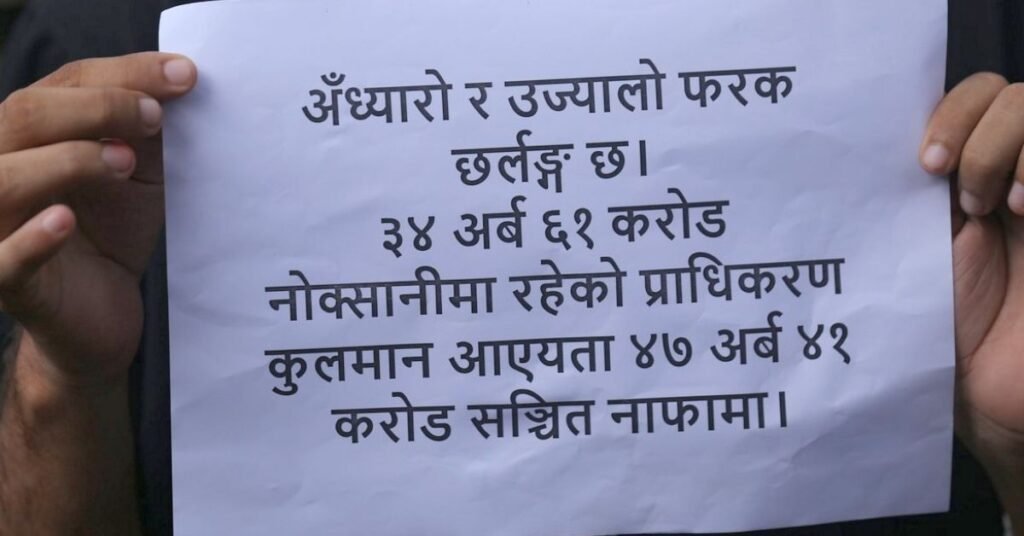 अँध्यारो र उज्यालो फरक
छर्लङ्ग छ।
३४ अर्ब ६१ करोड
नोक्सानीमा रहेको प्राधिकरण
कुलमान आएयता ४७ अर्ब ४१
करोड सञ्चित नाफामा।